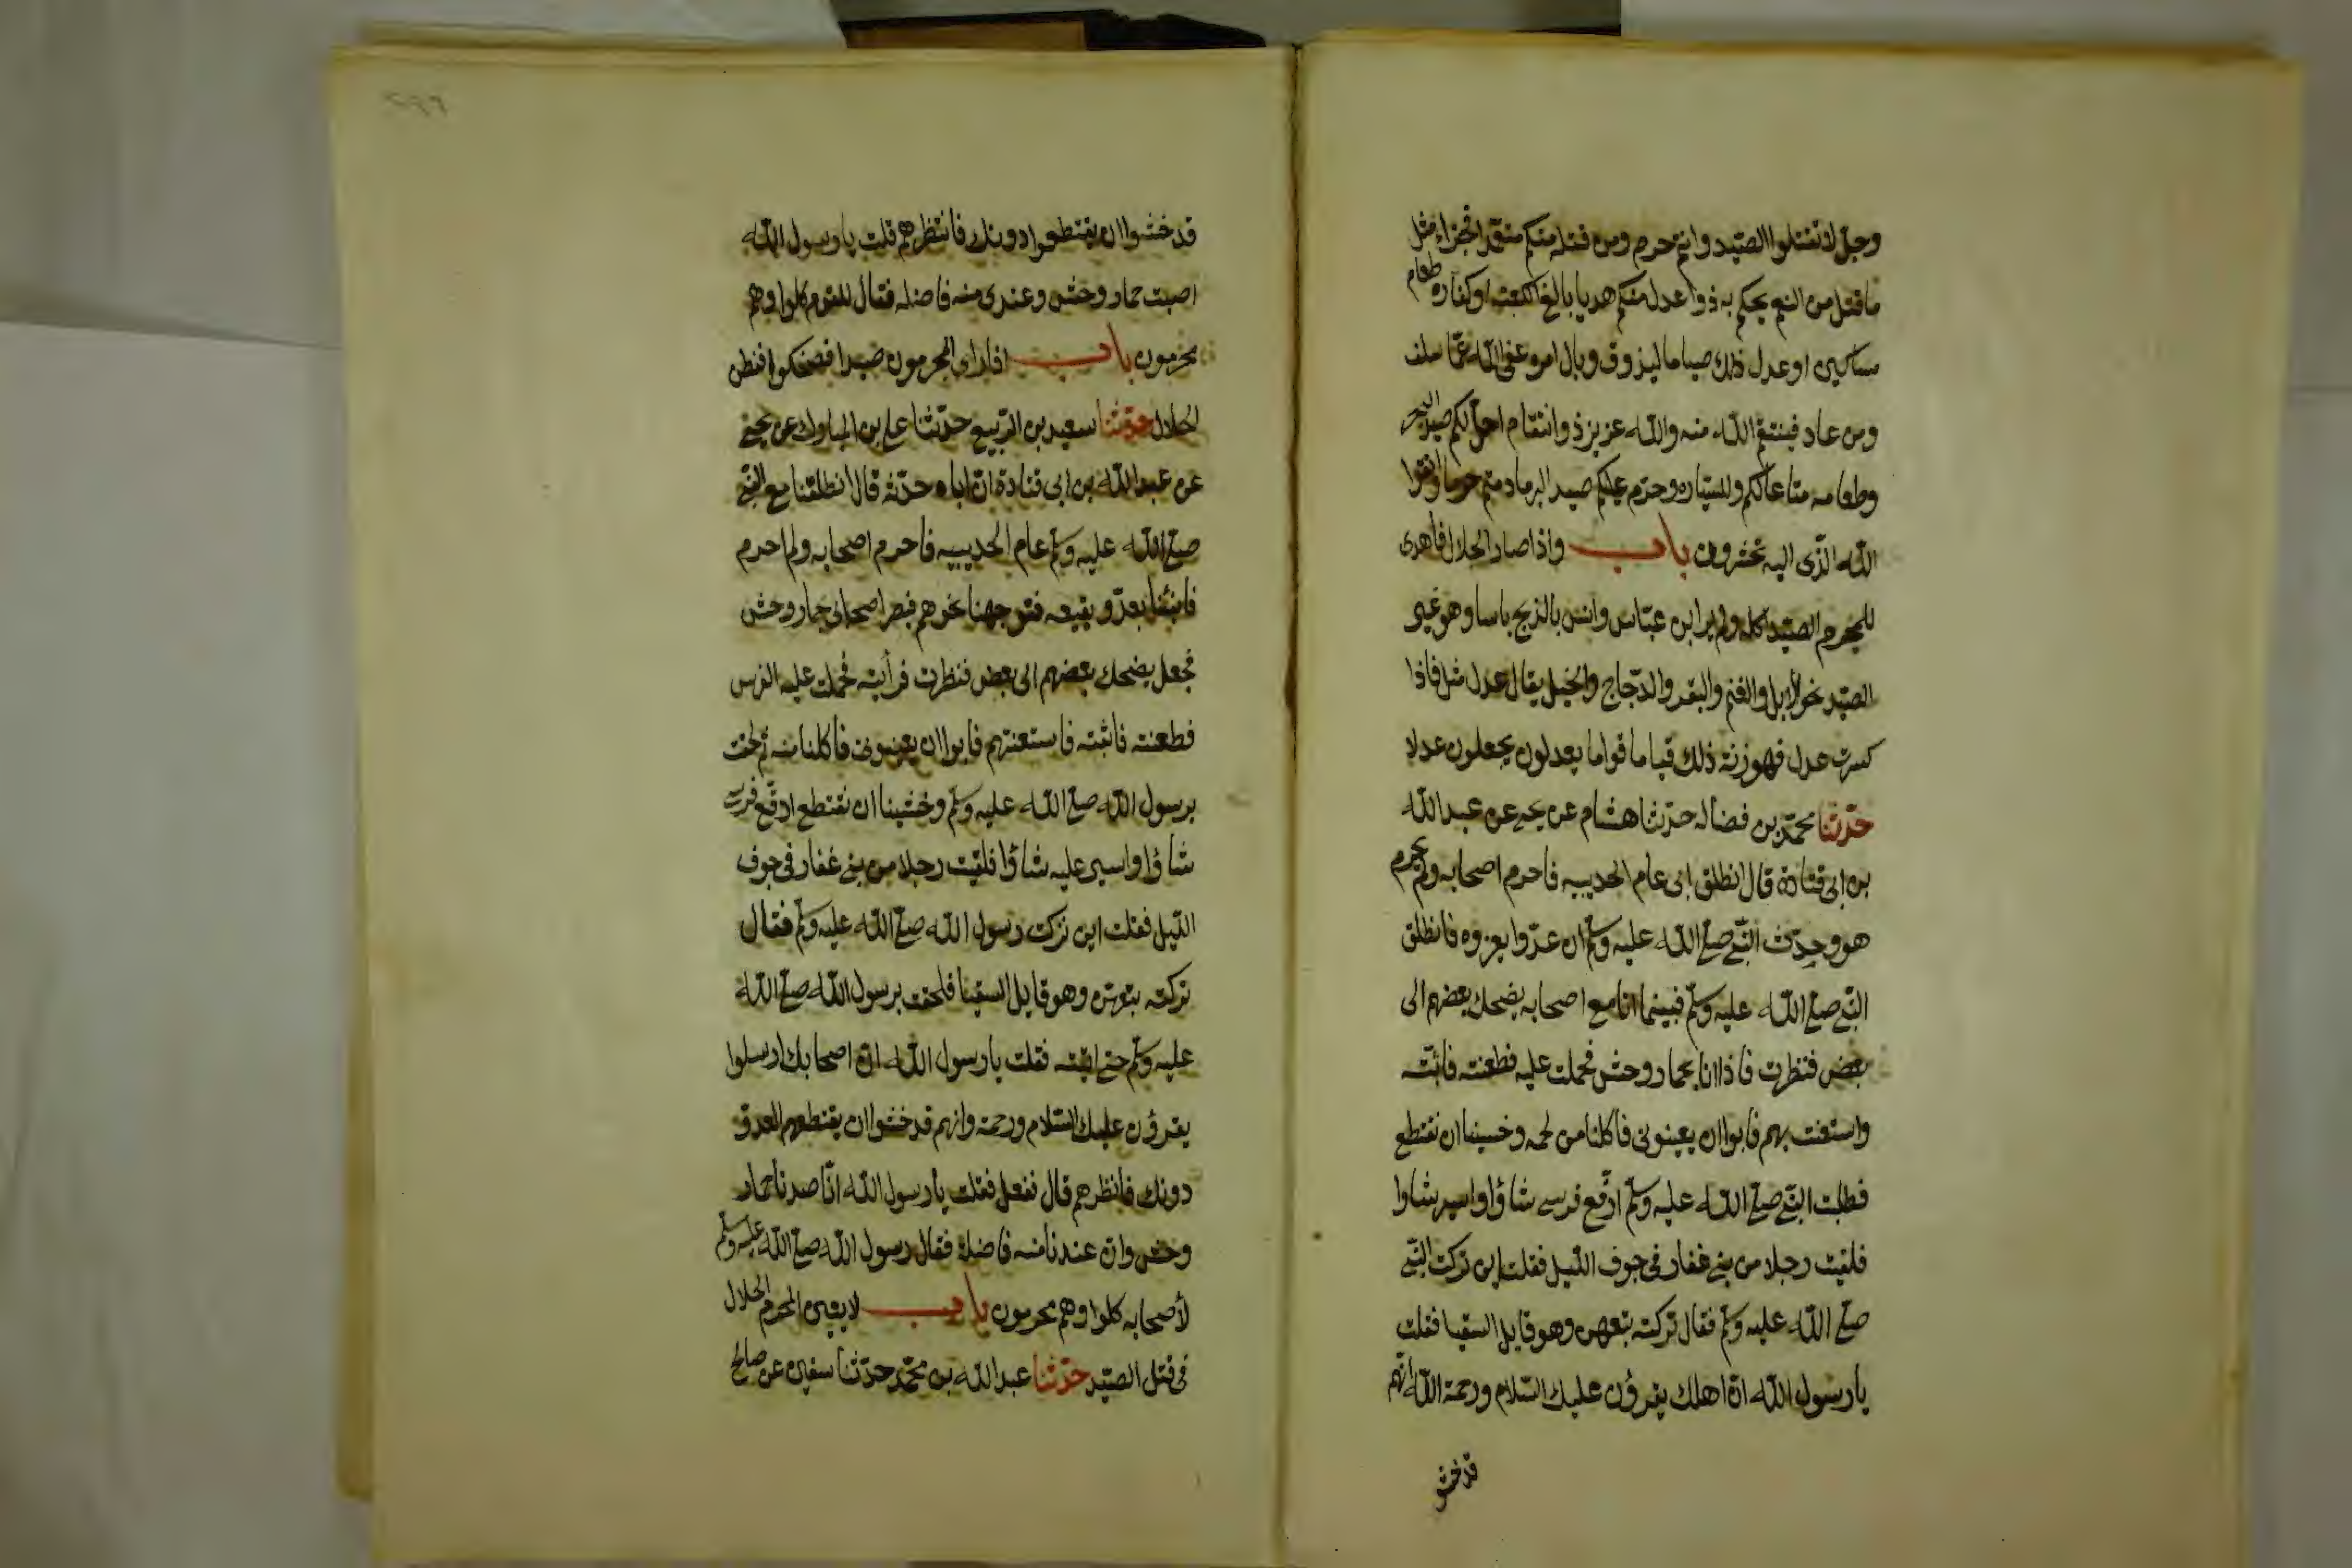 وجلّ لا تقتلوا الصّيد وانتم حرم ومن قتله منكم متعمّدا فجزاء مثل
ما قتل من النعم يحكم به ذوا عدل منكم هديا بالغ الكعبة او كفارة طعام
مساكين او عدل ذلك صياما ليذوق وبال امره عفى الله عمّا سلف
ومن عاد فينتقم الله منه والله عزيز ذو انتقام احلّ لكم صيد البحر
وطعامه متاعا لكم وللسيّاره وحرّم عليكم صيد البر مادمتم حرما واتقوا
الله الّذى اليه تحشرون باب واذا صاد الحلال فاهدى
للمحرم الصيّد اكله ولم ير ابن عبّاس وانس بالذبح باسا وهو غير
الصيّد نحو الابل والغنم والبقر والدّجاج والخيل يقال عدل مثل فاذا
كسرت عدل فهو زنة ذلك قياما قواما يعدلون يجعلون عدلا
حدّثنا محمّد بن فضاله حدّثنا هشام عن يحيى عن عبد الله
بن ابى قتادة قال انطلق ابى عام الحديبيه فاحرم اصحابه ولم يحرم
هو وحدّث النّبى صلّى الله عليه وسلّم ان عدّوا يغزوه فانطلق
النّبى صلّى الله عليه وسلّم فبينما انا مع اصحابه يضحك بعضهم الى
بعض فنظرت فاذا انا بحمار وحش فحملت عليه فطعنته فاثبّته
واستعنت بهم فابوا ان يعينونى فاكلنا من لحمه وخسينا ان نقتطع
فطلبت النّبى صلّى الله عليه وسلّم ارفّع فرسى شاؤا واسير شاوا
فلقيت رجلا من بنى غفار فى جوف اللّيل فقلت اين تركت النّبى
صلّى الله عليه وسلّم فقال تركته بتعهن وهو قايل السّقيا فقلت
يا رسول الله انّ اهلك يقرؤن عليك السّلام ورحمة الله انّهم
قد خشو
قد خشوا ان يقتطعوا دونك فانتظرهم قلت يا رسول الله
اصبت حمار وحش وعندى منه فاضله فقال للقوم كلوا وهم
محرمون باب اذا راى المحرمون صيدا فضحكوا ففطن
الحلال حدّثنا سعيد بن الرّبيع حدّثنا على بن المبارك عن يحيى
عن عبد الله بن ابى قتادة انّ اباه حدّثه قال انطلقنا مع النّبى
صلّى الله عليه وسلّم عام الحديبيه فاحرم اصحابه ولم احرم
فانبئنا بعدّو بغيقه فتوجهنا نحوهم فبصر اصحابى بحمار وحش
فجعل يضحك بعضهم الى بعض فنظرت فرأيته فحملت عليه الفرس
فطعنته فاثبته فاستعنتهم فابوا ان يعينونى فاكلنا منه ثم لحقت
برسول الله صلّى الله عليه وسلّم وخشينا ان نقتطع ارفّع فرسى
شاؤا واسير عليه شاؤا فلقيت رجلا من بنى غفار فى جوف
اللّيل فقلت اين تركت رسول الله صلّى الله عليه وسلّم فقال
تركته بتعهن وهو قايل السقيا فلحقت برسول الله صلّى الله
عليه وسلّم حتى اتيته فقلت يا رسول الله انّ اصحابك ارسلوا
يقرؤن عليك السّلام ورحمة وانهم قد خشوا ان يقتطعهم العدوّ
دونك فانظرهم قال ففعل فقلت يا رسول الله انّا صدنا حمار
وحش وان عندنا منه فاضلة فقال رسول الله صلّى الله عليه وسلّم
لأصحابه كلوا وهم محرمون باب لا يعين المحرم الحلال
فى قتل الصيّد حدّثنا عبد الله بن محمّد حدّثنا سفين عن صالح